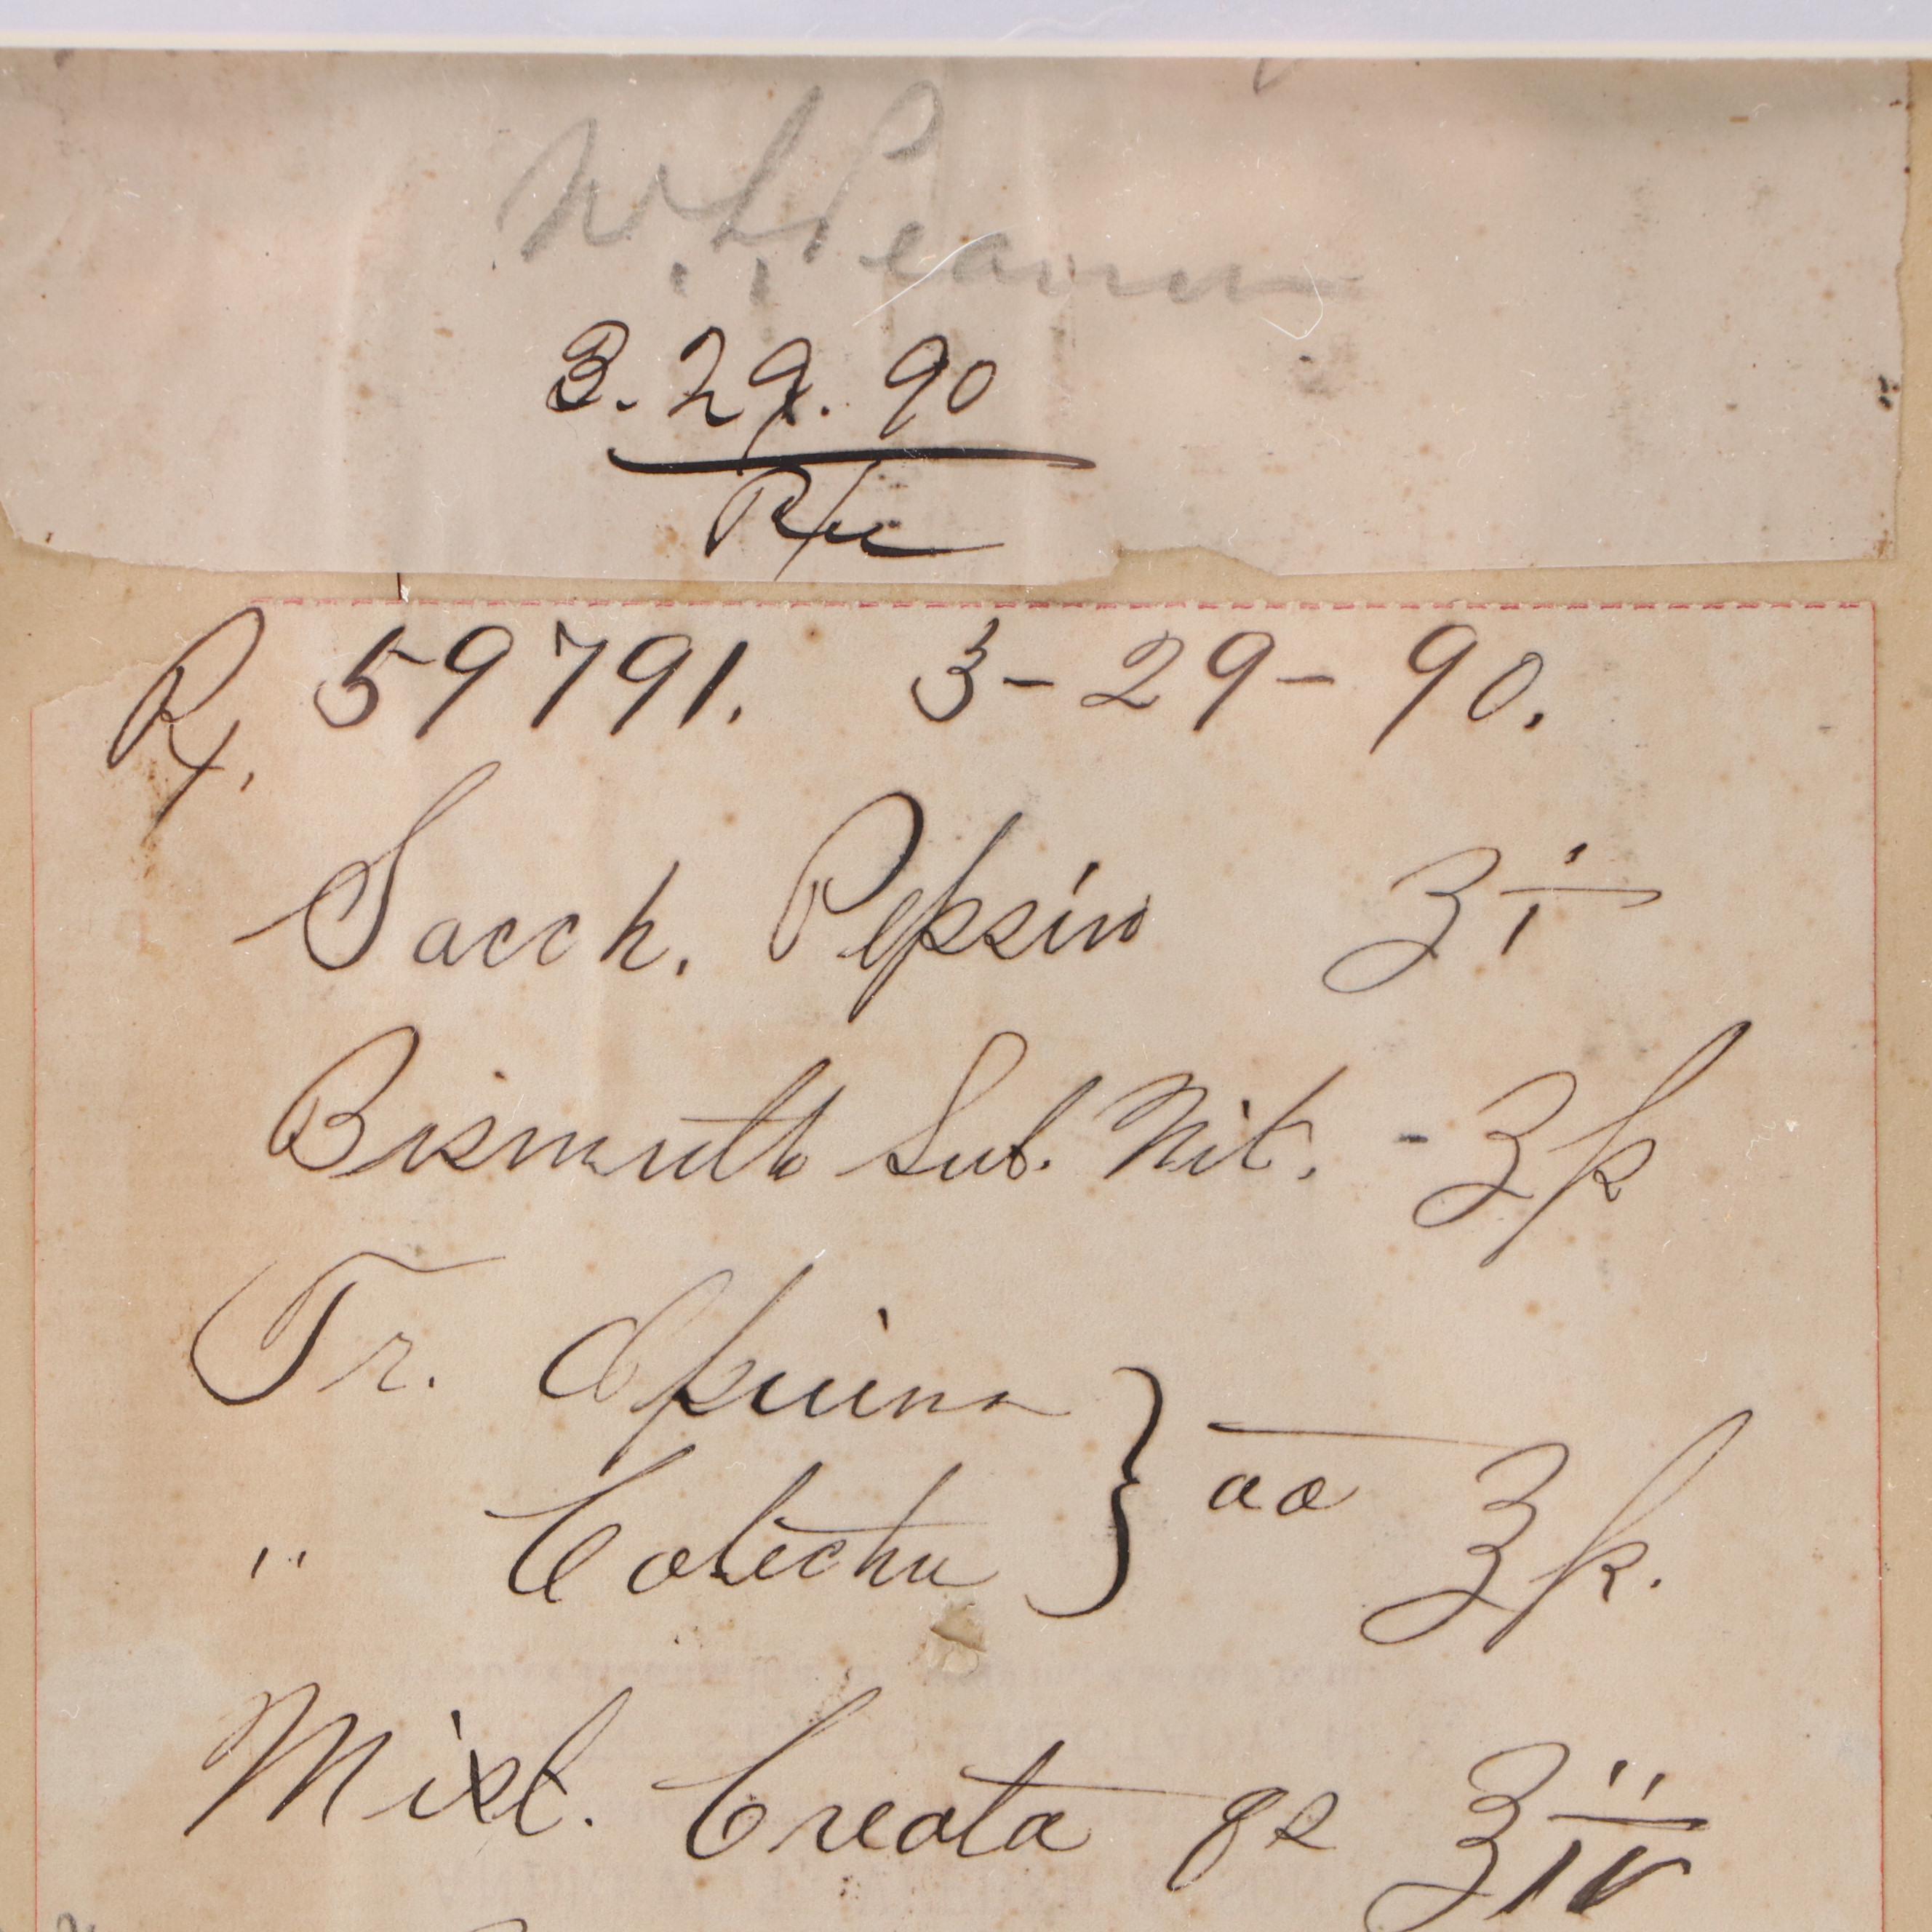 W. L.
3. 29. 90
Rx. 59791. 3-29-90.
Sacch. Pepsin ʒ i
Bismuth Sub. Nit. - ʒ ß
Tr. Opium
" Catechu } aa ʒ ß.
Mixt. Creata qs